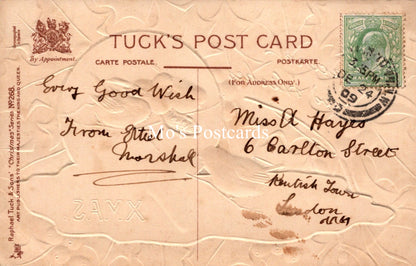 TUCK'S POST CARD
By Appointment
CARTE POSTALE
POSTKARTE
(FOR ADDRESS ONLY.)
Raphael Tuck & Sons' "Christmas" Series Nº 268.
ART PUBLISHERS TO THEIR MAJESTIES THE KING AND QUEEN.
DE 24
09
Every Good Wish
From Ethel
Marshall
Miss A Hayes
6 Carlton Street
Kentish Town
London
N.W
Mo's Postcards
XMAS